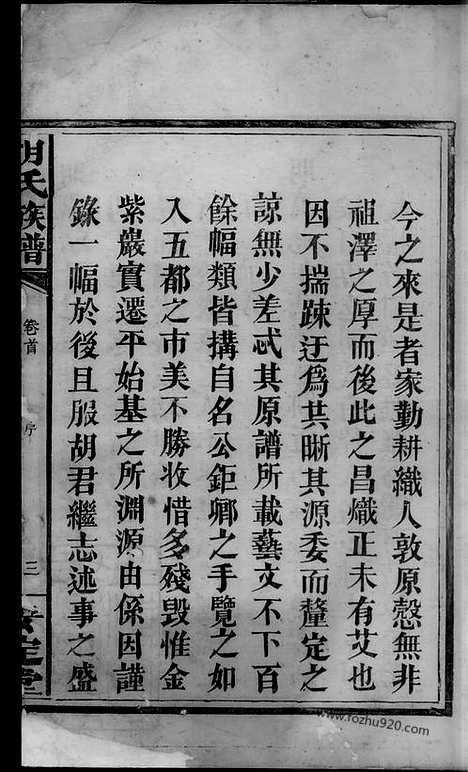 今之來是者家勤耕織人敦原慤無非
祖澤之厚而後此之昌熾正未有艾也
因不揣踈迂爲共晰其源委而釐定之
諒無少差忒其原譜所載藝文不下百
餘幅類皆搆自名公鉅卿之手覽之如
入五都之市美不勝收惜多殘毁惟金
紫嚴實遷平始基之所淵源由係因謹
錄一幅於後且服胡君繼志述事之盛
胡氏族譜
卷首
序
三
安定堂
www.fozhu920.com